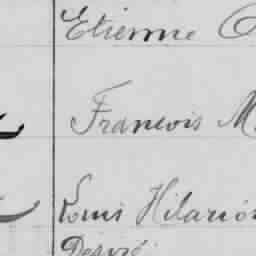 Etienne
Francois M.
Louis Hilarion